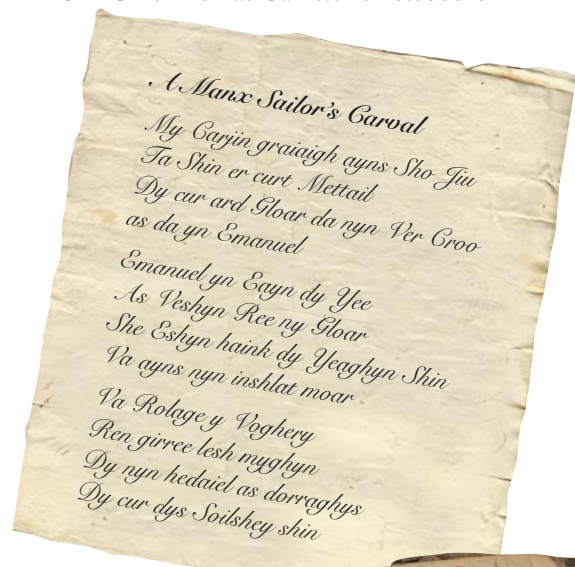 A Manx Sailor's Carval
My Carjin graiaigh ayns Sho Jiu
Ta Shin er curt Mettail
Dy cur ard Gloar da nyn Ver Croo
as da yn Emanuel
Emanuel yn Eayn dy Yee
As Veshyn Ree ny Gloar
She Eshyn haink dy Yeaghyn Shin
Va ayns nyn inshlat moar
Va Rolage y Voghery
Ren girree lesh myghyn
Dy nyn hedaiel as dorraghys
Dy cur dys Soilshey shin